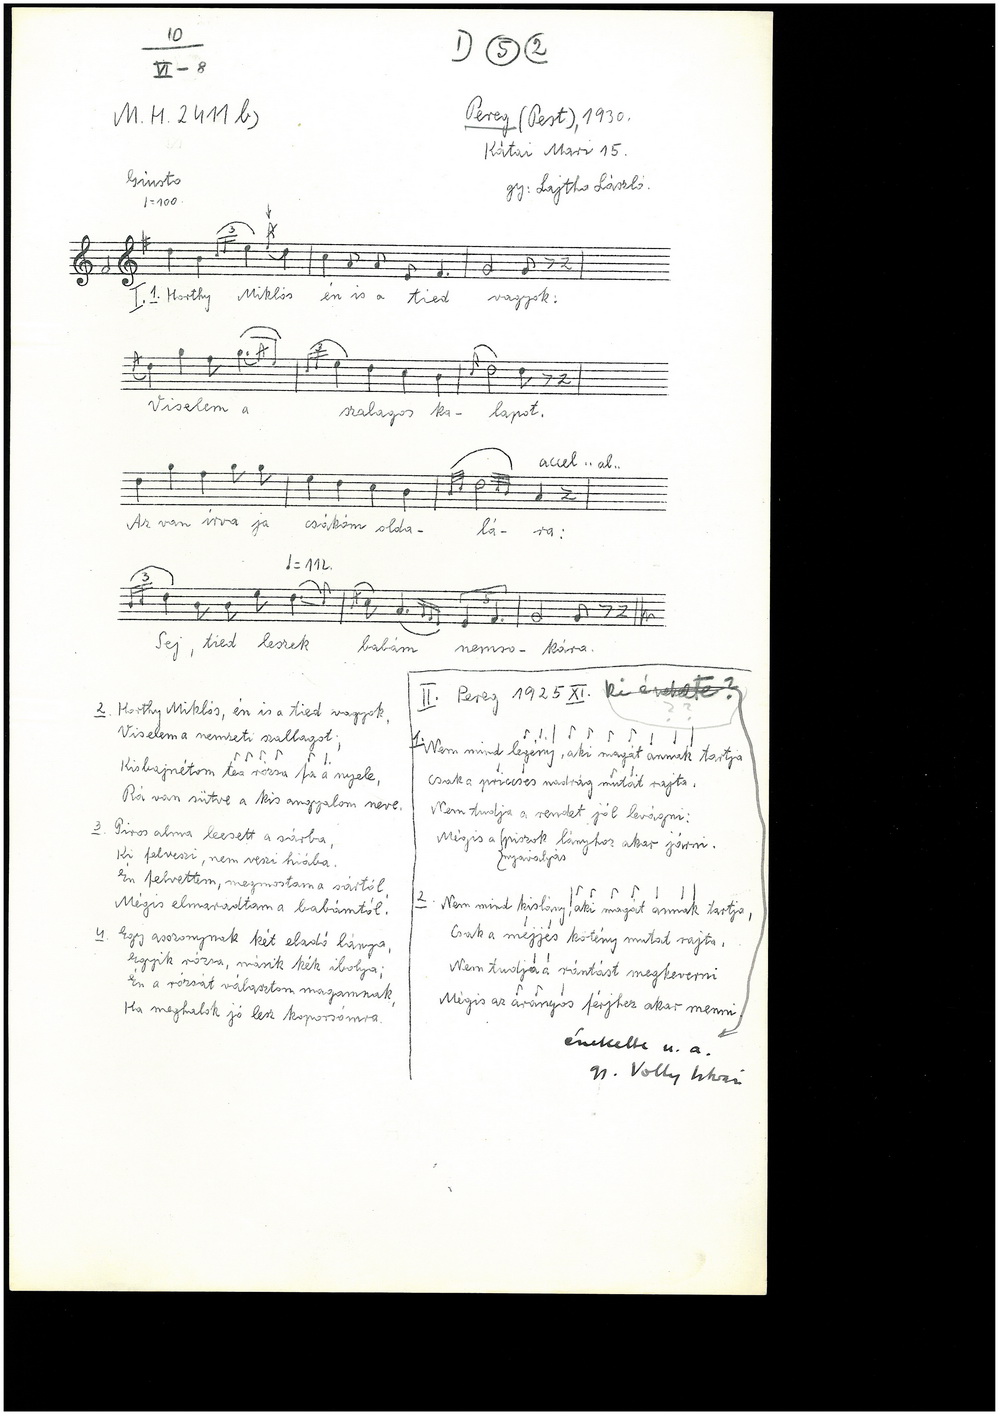 10
VI - 8
D 5 2
M.H. 2411 b)
Pereg (Pest), 1930.
Kátai Mari 15.
gy: Lajtha László.
Giusto
♩=100.
3
I. 1. Horthy Miklós én is a tied vagyok:
Viselem a szalagos ka- lapot.
accel .. al..
Az van írva ja csákóm olda- lá- ra:
♩=112.
3
Sej, tied leszek babám nemso- kára.
2. Horthy Miklós, én is a tied vagyok,
Viselem a nemzeti szallagot;
Kisbajnétom tea rózsa fa a nyele,
Rá van sütve a kis angyalom neve.
3. Piros alma leesett a sárba,
Ki felveszi, nem veszi hiába.
Én felvettem, megmostam a sártól,
Mégis elmaradtam a babámtól.
4. Egy asszonynak két eladó lánya,
Egyik rózsa, másik kék ibolya;
Én a rózsát választom magamnak,
Ha meghalok jó lesz koporsómra.
II. Pereg 1925 XI.
? ?
1. Nem mind legény, aki magát annak tartja
Csak a priccses nadrág mutát rajta.
Nem tudja a rendet jól levágni:
Mégis a piszok lányhoz akar járni.
nyavalyás
2. Nem mind kislány, aki magát annak tartja,
Csak a méjjés kötény mutad rajta.
Nem tudja a rántást megkeverni
Mégis az arányos férjhez akar menni.
énekelte u.a.
gy. Volly István